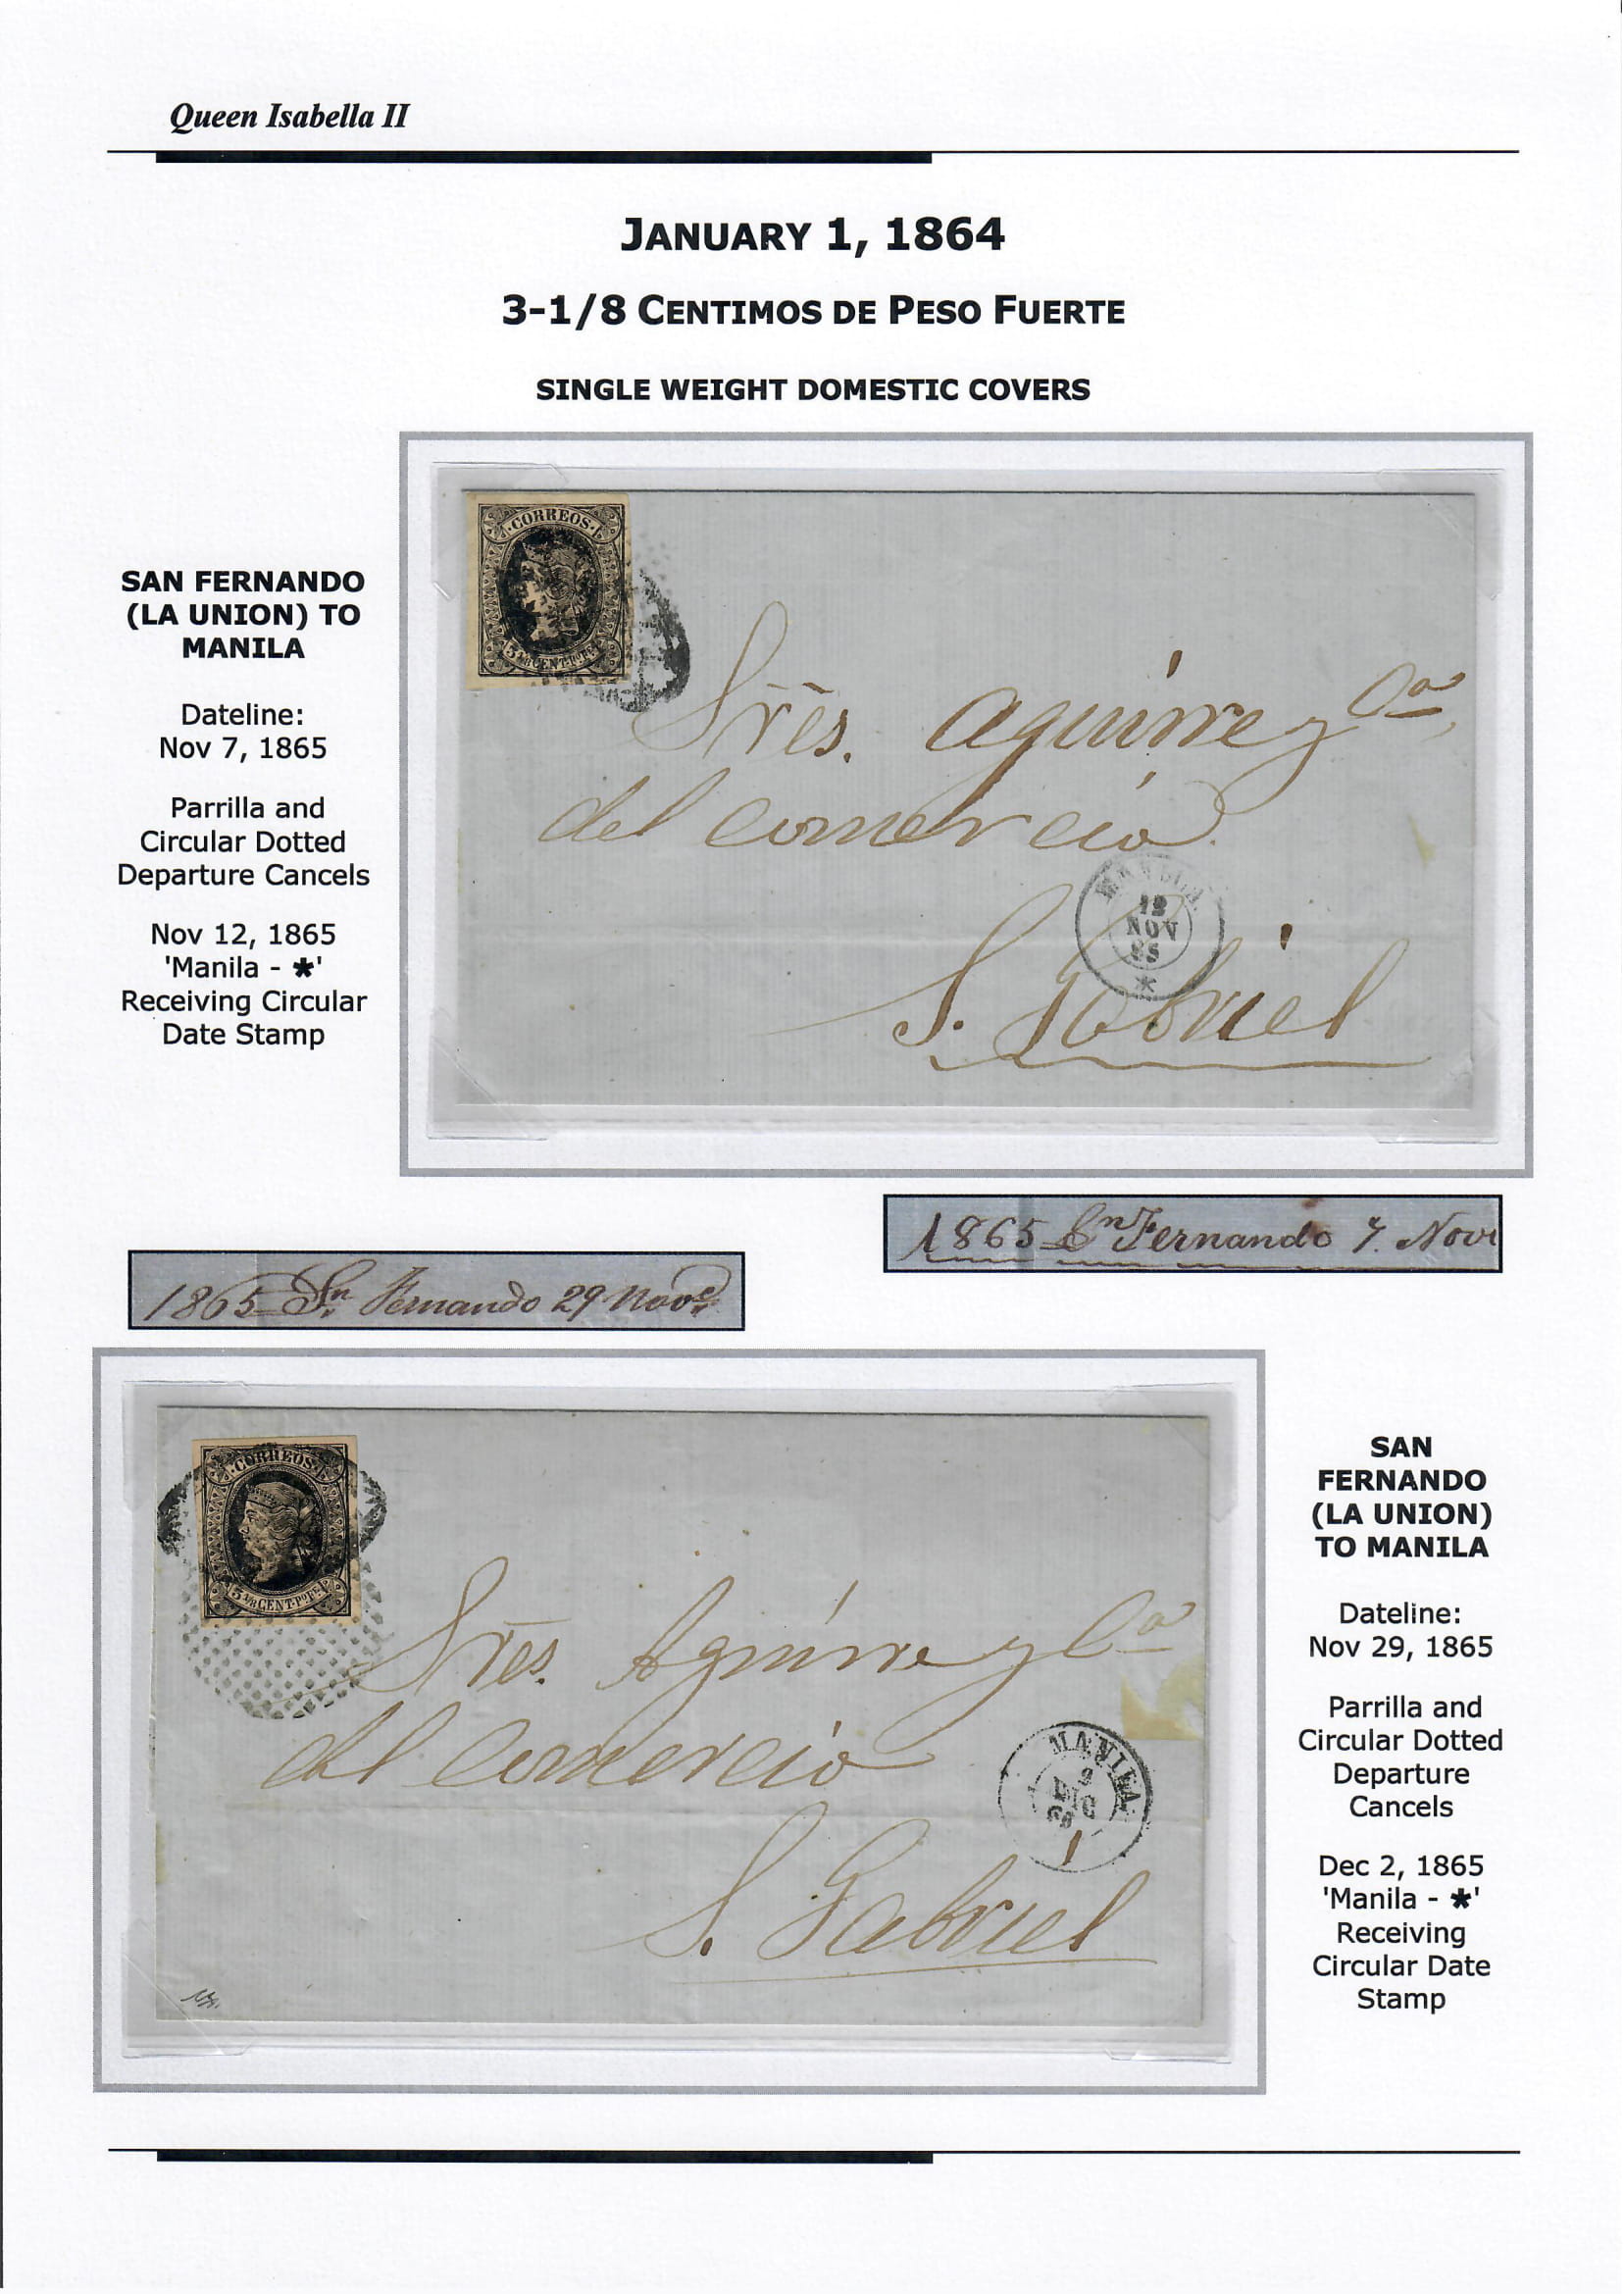 Queen Isabella II
JANUARY 1, 1864
3-1/8 CENTIMOS DE PESO FUERTE
SINGLE WEIGHT DOMESTIC COVERS
SAN FERNANDO
(LA UNION) TO
MANILA
Dateline:
Nov 7, 1865
Parrilla and
Circular Dotted
Departure Cancels
Nov 12, 1865
'Manila - *'
Receiving Circular
Date Stamp
CORREOS
3 1/8 CENT. Po Fe
Sres. Aguirre y Ca
del comercio
MANILA
12
NOV
65
*
S. Gabriel
1865 Sn Fernando 7. Novi
1865 Sn Fernando 29 Nove
CORREOS
3 1/8 CENT. Po Fe
Sres. Aguirre y Ca
del comercio
MANILA
2
DIC
65
S. Gabriel
SAN
FERNANDO
(LA UNION)
TO MANILA
Dateline:
Nov 29, 1865
Parrilla and
Circular Dotted
Departure
Cancels
Dec 2, 1865
'Manila - *'
Receiving
Circular Date
Stamp